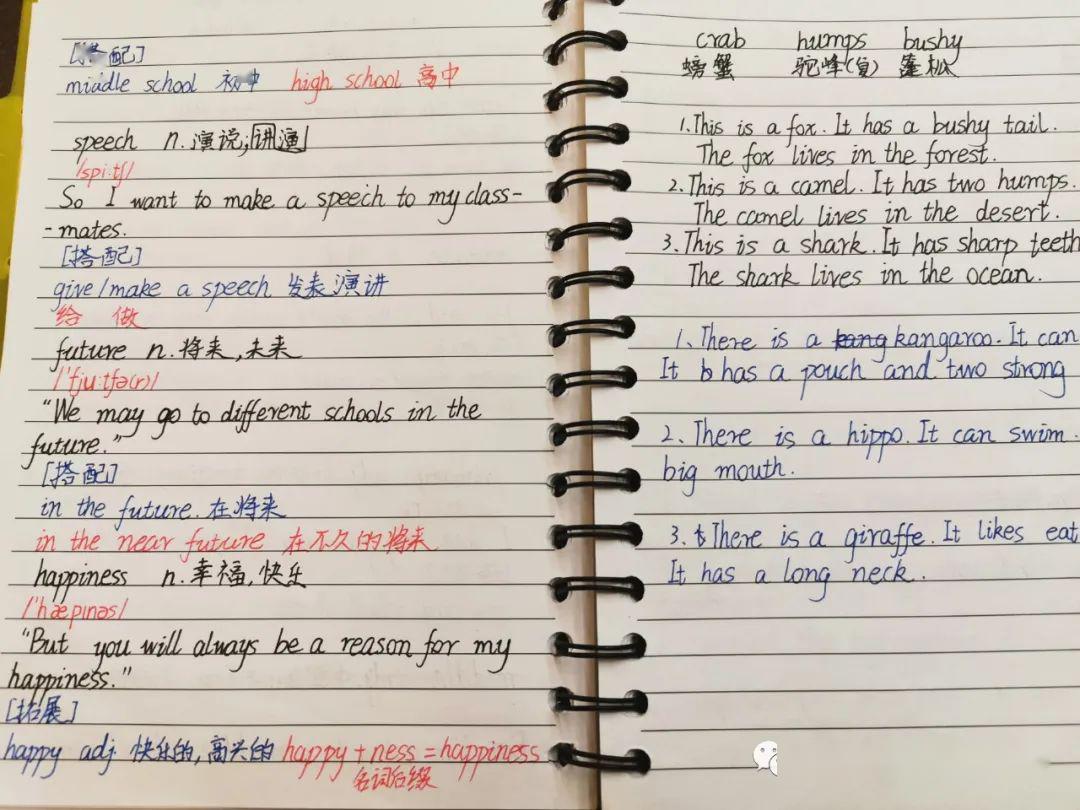 [搭配]
middle school 初中 high school 高中
speech n. 演说;讲演
/spi:tʃ/
So I want to make a speech to my class-
-mates.
[搭配]
give/make a speech 发表演讲
给 做
future n. 将来,未来
/ˈfju:tʃə(r)/
"We may go to different schools in the
future."
[搭配]
in the future. 在将来
in the near future 在不久的将来
happiness n. 幸福,快乐
/ˈhæpɪnəs/
"But you will always be a reason for my
happiness."
[拓展]
happy adj 快乐的,高兴的 happy+ness=happiness
名词后缀
crab humps bushy
螃蟹 驼峰(复) 蓬松
1.This is a fox. It has a bushy tail.
The fox lives in the forest.
2.This is a camel. It has two humps.
The camel lives in the desert.
3.This is a shark. It has sharp teeth
The shark lives in the ocean.
1、There is a kangaroo. It can
It has a pouch and two strong
2、There is a hippo. It can swim.
big mouth.
3、There is a giraffe. It likes eat
It has a long neck.